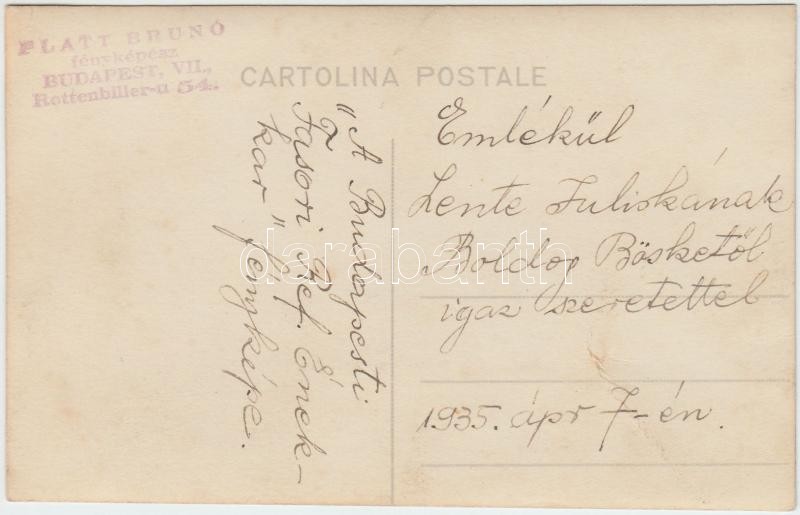 PLATT BRUNÓ
fényképész
BUDAPEST, VII.,
Rottenbiller-u 54.
CARTOLINA POSTALE
„A Budapesti
Fasori Ref. Ének-
kar" fényképe.
Emlékül
Lente Juliskának
Boldog Bösketől
igaz szeretettel
1935. ápr 7-én.
darabanth